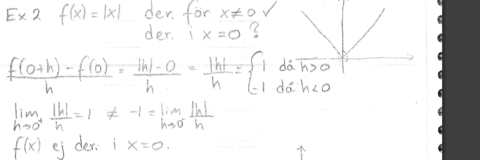 Ex 2 f(x) = |x| der. för x≠0 ✓
der. i x=0 ?
f(0+h) - f(0) / h = |h| - 0 / h = |h| / h = { 1 då h>0
-1 då h<0
lim h→0⁺ |h|/h = 1 ≠ -1 = lim h→0⁻ |h|/h
f(x) ej der. i x=0.